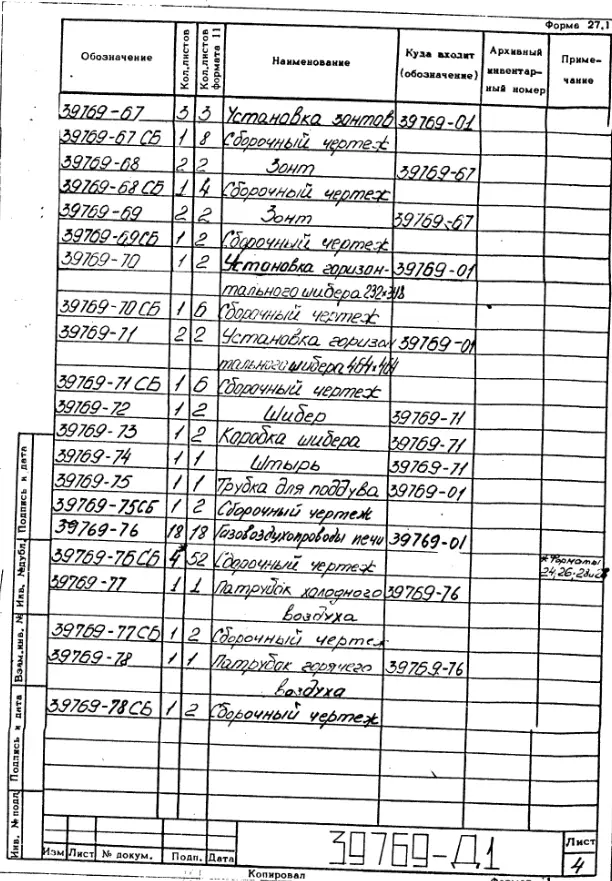 Форма 27.1
Обозначение Кол.листов Кол.листов формата 11 Наименование Куда входит (обозначение) Архивный инвентарный номер Примечание
39769-67 3 3 Установка зонтов 39769-01
39769-67 СБ 1 8 Сборочный чертеж
39769-68 2 2 Зонт 39769-67
39769-68 СБ 1 4 Сборочный чертеж
39769-69 2 2 Зонт 39769-67
39769-69СБ 1 2 Сборочный чертеж
39769-70 1 2 Установка горизон- 39769-01
тального шибера 232×348
39769-70 СБ 1 6 Сборочный чертеж
39769-71 2 2 Установка горизон 39769-01
тального шибера 464×464
39769-71 СБ 1 6 Сборочный чертеж
39769-72 1 2 Шибер 39769-71
39769-73 1 2 Коробка шибера 39769-71
39769-74 1 1 Штырь 39769-71
39769-75 1 1 Трубка для поддува 39769-01
39769-75СБ 1 2 Сборочный чертеж
39769-76 18 18 Газовоздухопроводы печи 39769-01
39769-76 СБ 4* 52 Сборочный чертеж * Форматы
24,26,28и
39769-77 1 1 Патрубок холодного 39769-76
воздуха
39769-77СБ 1 2 Сборочный чертеж
39769-78 1 1 Патрубок горячего 39769-76
воздуха
39769-78СБ 1 2 Сборочный чертеж
Подпись и дата
Инв. №дубл.
Взам.инв. №
Подпись и дата
Инв. №подл
Изм Лист № докум. Подп. Дата
39769-Д1
Лист
4
Копировал